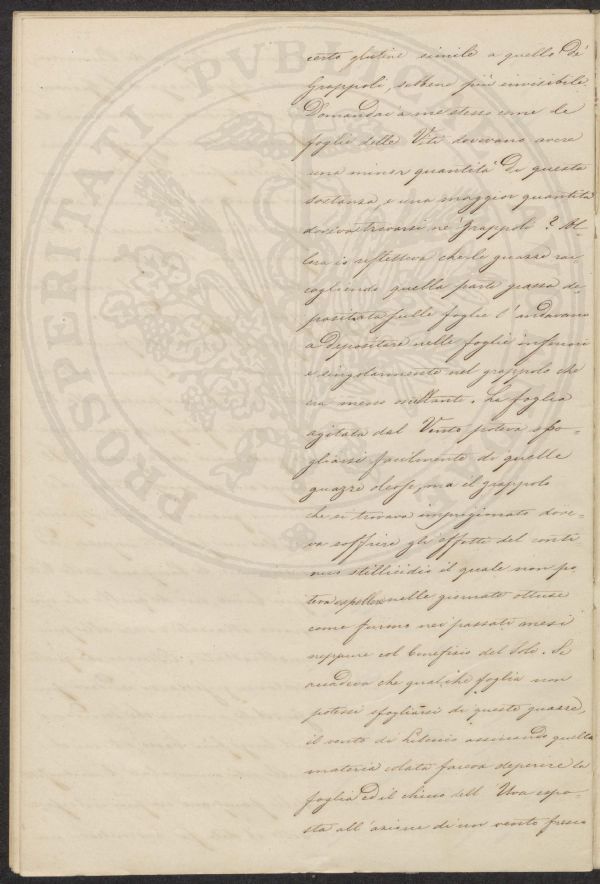 certo glutine simile a quello de'
Grappoli, sebbene più invisibile.
Domandai a me stesso come le
foglie delle Viti dovevano avere
una minor quantità di questa
sostanza, e una maggior quantità
doveva trovarsi ne' Grappoli? Al-
lora io rifletteva che le guazze rac
cogliendo quella parte grassa de-
positata sulle foglie l'andavano
a depositare nelle foglie inferiori
e singolarmente nel grappolo che
era meno oscillante. La foglia
agitata dal Vento poteva spo-
gliarsi facilmente di quelle
guazze oleose, ma il grappolo
che si trovava imprigionato dove-
va soffrire gli effetti del conti
nuo stillicidio il quale non po
teva espellere nelle giornate ottuse
come furono nei passati mesi
neppure col beneficio del Sole. Se
accadeva che qualche foglia non
potesse sfogliarsi di queste guazze,
il vento di Libeccio assinando quella
materia colata faceva deperire la
foglia ed il chicco dell'Uva espo-
sta all'azione di un vento fresco
PROSPERITATI PVBLICAE